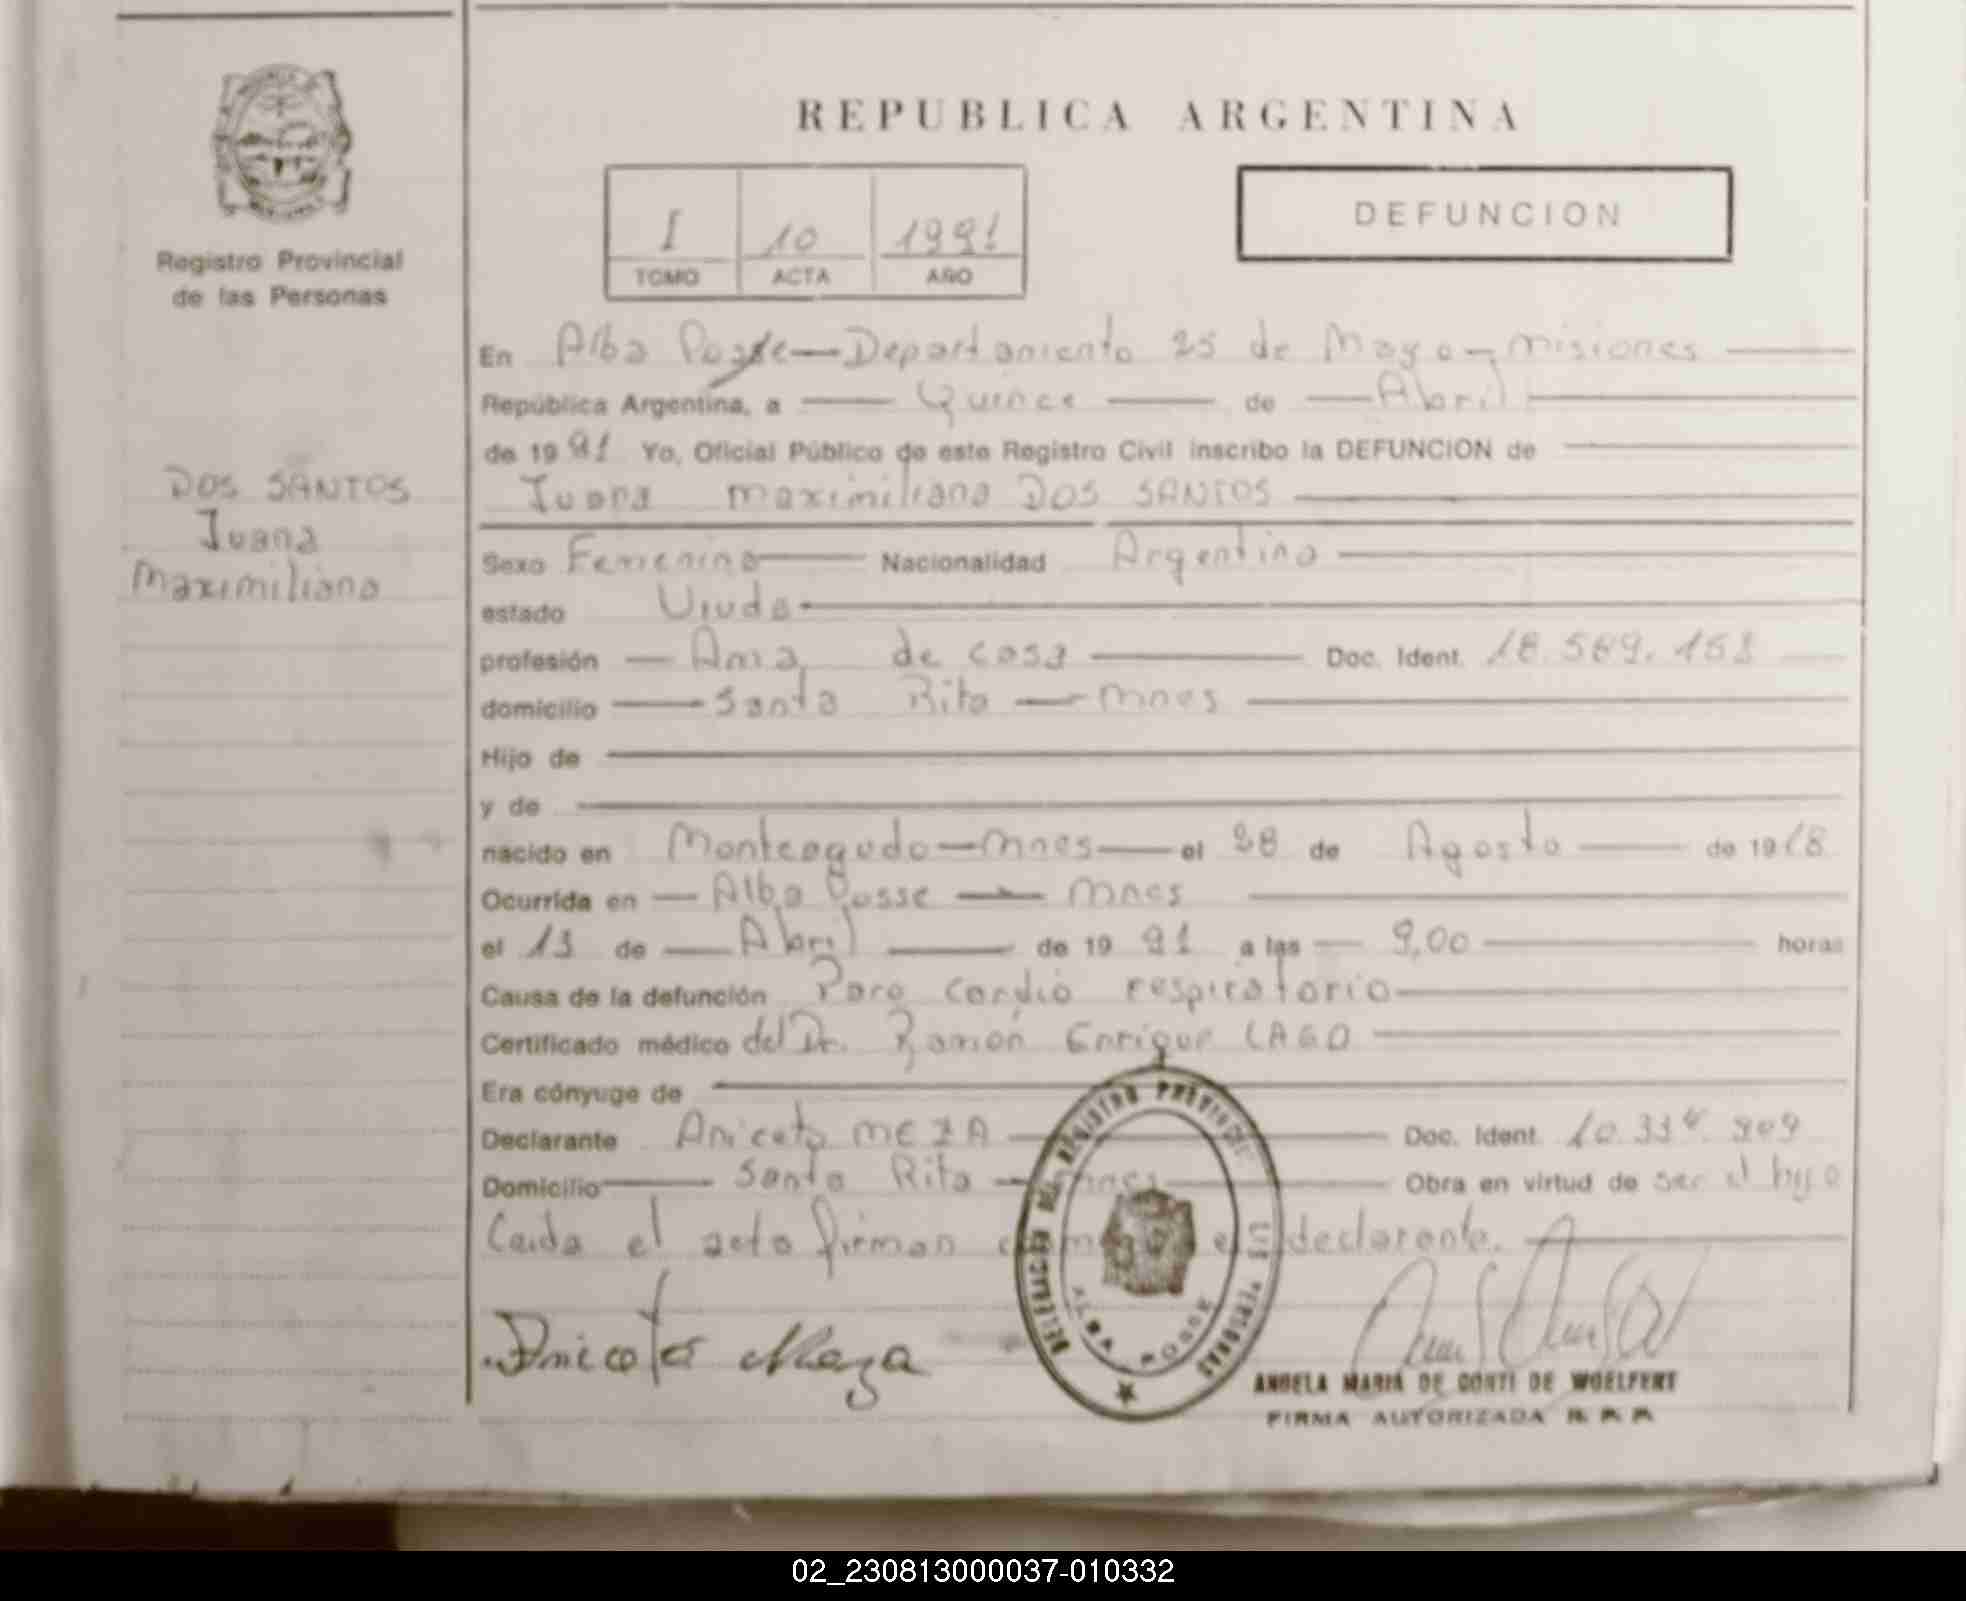 REPUBLICA ARGENTINA
Registro Provincial
de las Personas
I 10 1991
TOMO ACTA AÑO
DEFUNCION
DOS SANTOS
Juana
Maximiliana
En Alba Posse — Departamento 25 de Mayo — Misiones
República Argentina, a Quince de Abril
de 1991 Yo, Oficial Público de este Registro Civil inscribo la DEFUNCION de
Juana Maximiliana DOS SANTOS
Sexo Femenino Nacionalidad Argentina
estado Viuda
profesión Ama de casa Doc. Ident.
domicilio Santa Rita — Mnes
Hijo de
y de
nacido en Monteagudo — Mnes — el 28 de Agosto de 1918
Ocurrida en Alba Posse — Mnes
el 13 de Abril de 1991 a las 9,00 horas
Causa de la defunción Paro cardio respiratorio
Certificado médico del Dr. Ramón Enrique LAGO
Era cónyuge de
Declarante Aniceto MEZA Doc. Ident.
Domicilio Santa Rita — Mnes Obra en virtud de ser el hijo
Leída el acta firman el declarante.
Aniceto Meza
DELEGACION DEL REGISTRO PROVINCIAL DE LAS PERSONAS
ALBA POSSE
ANGELA MARIA DE CONTI DE WOELFERT
FIRMA AUTORIZADA R. P. P.
02_230813000037-010332